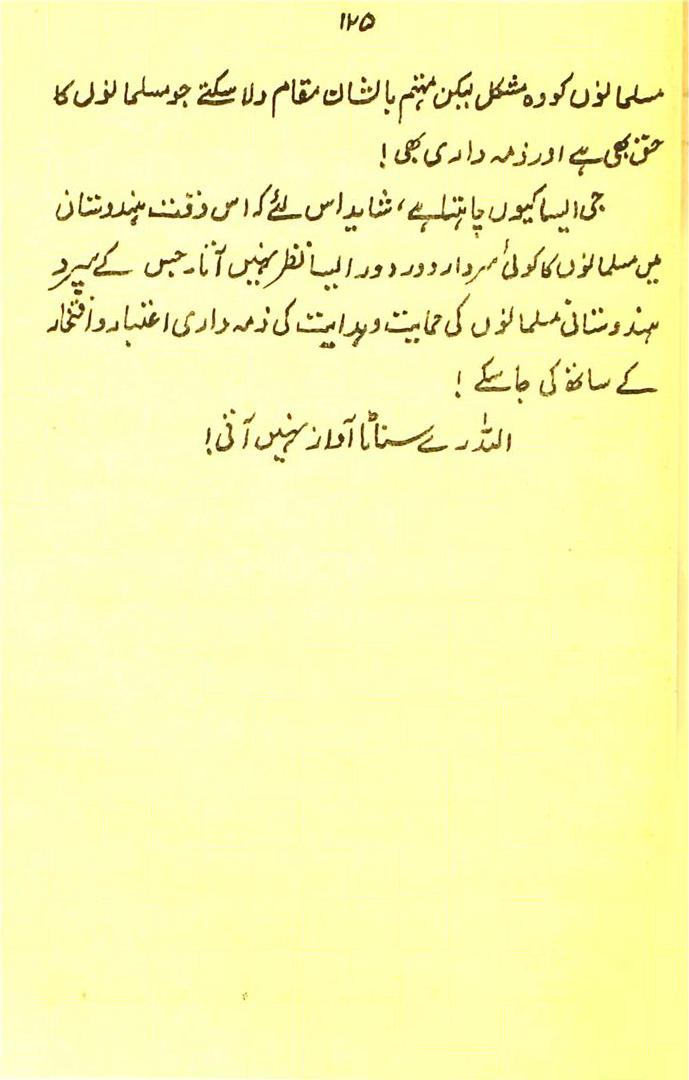 ۱۲۵
مسلمانوں کو وہ مشکل لیکن مہتم بالشان مقام دلا سکتے جو مسلمانوں کا
حق بھی ہے اور ذمہ داری بھی !
جی ایسا کیوں چاہتا ہے، شاید اس لئے کہ اس وقت ہندوستان
میں مسلمانوں کا کوئی سردار دور دور ایسا نظر نہیں آتا، جس کے سپرد
ہندوستانی مسلمانوں کی حمایت و ہدایت کی ذمہ داری اعتبار و افتخار
کے ساتھ کی جا سکے !
اللہ رے سناٹا آواز نہیں آتی !